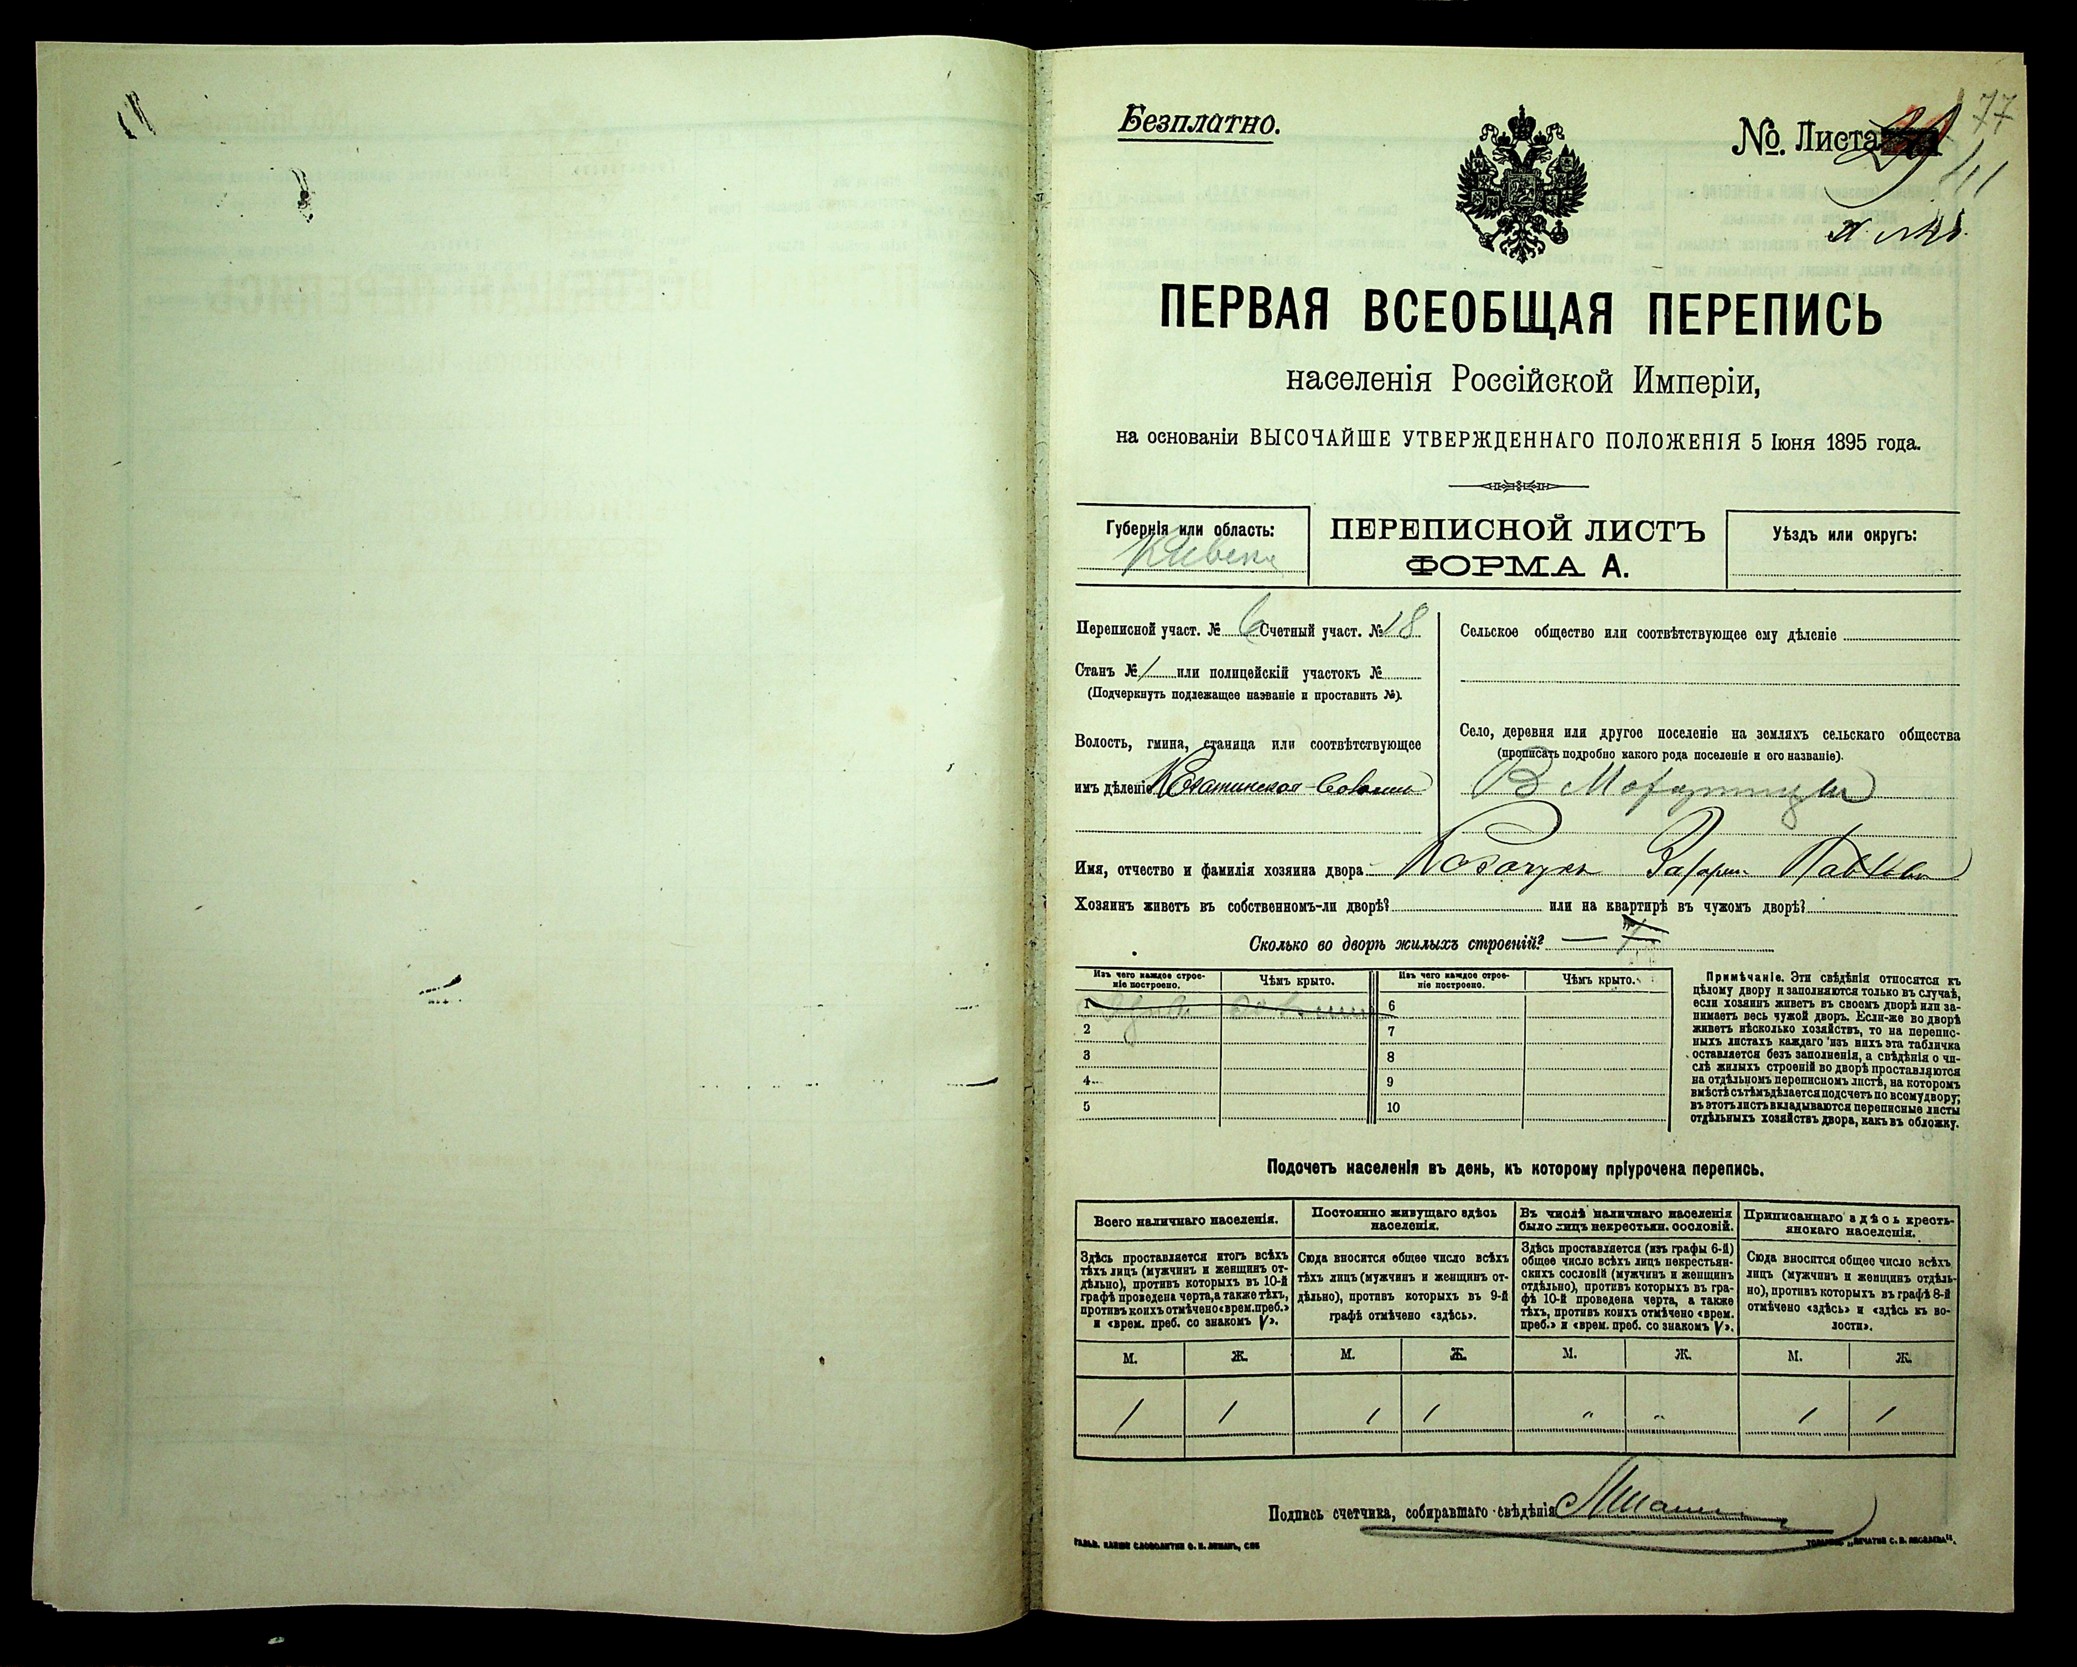 Безплатно.
№ Листа 77
ПЕРВАЯ ВСЕОБЩАЯ ПЕРЕПИСЬ
населенія Россійской Имперіи,
на основаніи ВЫСОЧАЙШЕ УТВЕРЖДЕННАГО ПОЛОЖЕНІЯ 5 Іюня 1895 года.
Губернія или область:
ПЕРЕПИСНОЙ ЛИСТЪ
ФОРМА А.
Уѣздъ или округъ:
Переписной участ. № 6 Счетный участ. № 18
Сельское общество или соотвѣтствующее ему дѣленіе
Станъ № 1 или полицейскій участокъ №
(Подчеркнуть подлежащее названіе и проставить №).
Волость, гмина, станица или соотвѣтствующее
имъ дѣленіе
Село, деревня или другое поселеніе на земляхъ сельскаго общества
(прописать подробно какого рода поселеніе и его названіе).
Имя, отчество и фамилія хозяина двора
Хозяинъ живетъ въ собственномъ-ли дворѣ? или на квартирѣ въ чужомъ дворѣ?
Сколько во дворѣ жилыхъ строеній? —
Изъ чего каждое строе-
ніе построено.
Чѣмъ крыто.
Изъ чего каждое строе-
ніе построено.
Чѣмъ крыто.
1 6
2 7
3 8
4 9
5 10
Примѣчаніе. Эти свѣдѣнія относятся къ
цѣлому двору и заполняются только въ случаѣ,
если хозяинъ живетъ въ своемъ дворѣ или за-
нимаетъ весь чужой дворъ. Если-же во дворѣ
живетъ нѣсколько хозяйствъ, то на перепис-
ныхъ листахъ каждаго изъ нихъ эта табличка
оставляется безъ заполненія, а свѣдѣнія о чи-
слѣ жилыхъ строеній во дворѣ проставляются
на отдѣльномъ переписномъ листѣ, на которомъ
вмѣстѣ съ тѣмъ дѣлается подсчетъ по всему двору;
въ этотъ листъ вкладываются переписные листы
отдѣльныхъ хозяйствъ двора, какъ въ обложку.
Подочетъ населенія въ день, къ которому пріурочена перепись.
Всего наличнаго населенія.
Здѣсь проставляется итогъ всѣхъ
тѣхъ лицъ (мужчинъ и женщинъ от-
дѣльно), противъ которыхъ въ 10-й
графѣ проведена черта, а также тѣхъ,
противъ коихъ отмѣчено «врем. преб.»
и «врем. преб. со знакомъ V».
Постоянно живущаго здѣсь
населенія.
Сюда вносится общее число всѣхъ
тѣхъ лицъ (мужчинъ и женщинъ от-
дѣльно), противъ которыхъ въ 9-й
графѣ отмѣчено «здѣсь».
Въ числѣ наличнаго населенія
было лицъ некрестьян. сословій.
Здѣсь проставляется (изъ графы 6-й)
общее число всѣхъ лицъ некрестьян-
скихъ сословій (мужчинъ и женщинъ
отдѣльно), противъ которыхъ въ гра-
фѣ 10-й проведена черта, а также
тѣхъ, противъ коихъ отмѣчено «врем.
преб.» и «врем. преб. со знакомъ V».
Приписаннаго здѣсь кресть-
янскаго населенія.
Сюда вносится общее число всѣхъ
лицъ (мужчинъ и женщинъ отдѣль-
но), противъ которыхъ въ графѣ 8-й
отмѣчено «здѣсь» и «здѣсь къ во-
лости».
М. Ж. М. Ж. М. Ж. М. Ж.
1 1 1 1 " " 1 1
Подпись счетчика, собиравшаго свѣдѣнія